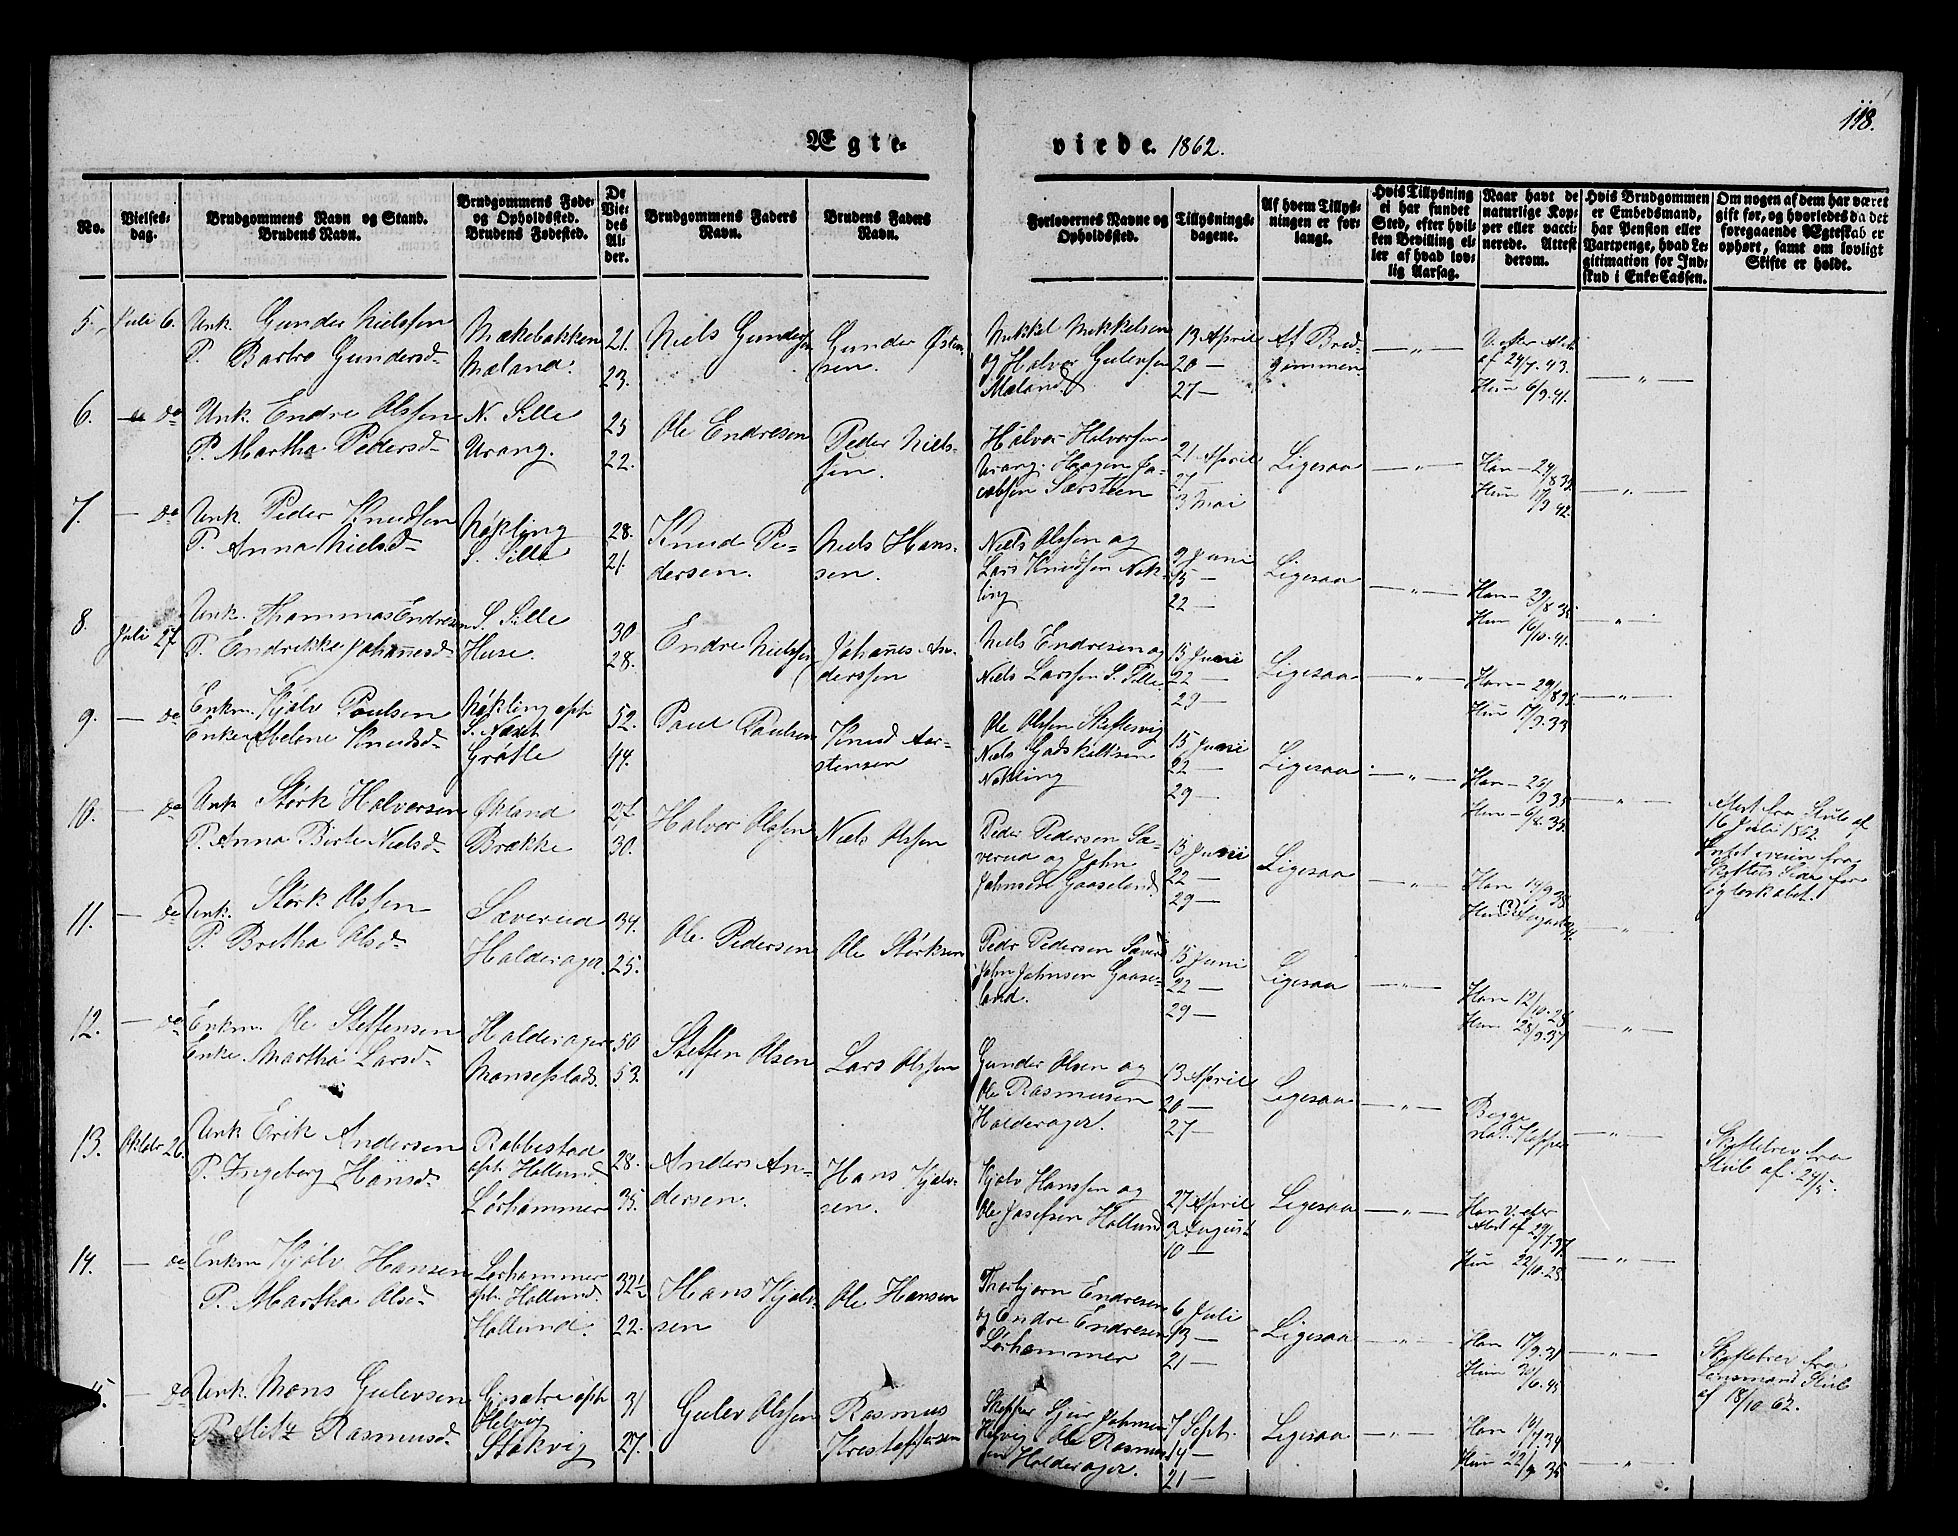 118.
Ægte-
virde. 1862.
No.
Vielses-
dag.
Brudgommens Navn og Stand.
Brudens Navn.
Brudgommens Føde-
og Opholdssted.
Brudens Fødested.
De
Vie-
des
Al-
der.
Brudgommens Faders
Navn.
Brudens Faders
Navn.
Forlovernes Navne og
Opholdssted.
Tillysnings-
dagene.
Af hvem Tillys-
ningen er for-
langt.
Hvis Tillysning
ei har fundet
Sted, efter hvil-
ken Bevilling el-
ler af hvad lov-
lig Aarsag.
Naar havt de
naturlige Kop-
per eller vacci-
nerede. Attest
derom.
Hvis Brudgommen
er Embedsmand,
har Pension eller
Vartpenge, hvad Le-
gitimation for Ind-
skud i Enke-Cassen.
Om nogen af dem har været
gift før, og hvorledes da det
foregaaende Ægteskab er
ophørt, samt om lovligt
Skifte er holdt.
5. Juli 6.
Unk. Gunder Nielssen
P. Barbro Gundersd.
Mækebakken
Mæland.
21.
23.
Niels Gunders
Gunder Østen-
sen.
Mikkel Mikkelsen
og Halvor Gulevsen
Mæland.
13 April
20 —
27 —
Af Brud-
gommen.
— " —
V. efter Attest
af 24/7. 43.
Hun 6/9. 41.
— " —
6. — do
Unk. Endre Olssen
P. Martha Pedersd.
N. Sille
Urang.
25
22.
Ole Endresen
Peder Niels-
sen.
Halvor Halvorsen
Urang. Haagen Ja-
cobsen Særsteen
21 April
27
3 Mai
Ligesaa
— " —
Han — 24/8 39.
Hun 17/9 42.
— " —
7. — do
Unk. Peder Knudsen
P. Anna Nielsd.
Nøkling
S. Sille
28.
21.
Knud Pe-
dersen.
Niels Hans-
sen.
Niels Olssen og
Lars Knudsen Nøk-
ling
9 Juni
15 —
22 —
Ligesaa
— " —
Han — 29/8 35
Hun 16/10. 41.
— " —
8. Juli 27.
Unk. Thommas Endresen
P. Endrikke Johannesd.
S. Sille
Huse.
30
28.
Endre Nielssen
Johannes An-
derssen
Niels Endresen og
Niels Larssen S. Sille
15 Juni
22 —
29 —
Ligesaa
— " —
Han — 29/8 35
Hun 17/9. 34
— " —
9. — do
Enkm. Kjølv Paulsen
Enke Abelone Knudsd.
Nøkling oph.
S. Næset
Grøtle
52.
44.
Paul Paulsen
Knud Aar-
stensen
Ole Olssen Skeftesvig
Niels Gadskalksen
Nøkling
15 Juni
22 —
29 —
Ligesaa
— " —
— " —
Attest fra Skulb af
16 Juli 1862
Intet iveien fra
Skiftets Side for
Egteskabet.
10. — do
Unk Størk Halvorsen
P. Anna Birte Nielsd.
Økland
Brække
27
30.
Halvor Olssen
Niels Olssen
Peder Pedersen Sæ-
verud og John
Johnsen Gaaseland
15 Juni
22 —
29 —
Ligesaa
— " —
— " —
11. — do
Unk. Størk Olssen
P. Bretha Olsd.
Sæverud
Halderager.
34.
25.
Ole Pedersen
Ole Størksen
Pedr Pedersen Sæver
John Johnsen Gaase-
land.
15 Juni
22 —
29 —
Ligesaa
— " —
Han 12/10. 28
Hun 28/9. 37
— " —
12. — do
Enkm. Ole Steffensen
Enke Martha Larsd.
Halderager
Monsesplads.
50
53.
Steffen Olsen
Lars Olssen
Gunder Olsen og
Ole Rasmusen
Halderager.
13 April
20 —
27 —
Ligesaa
— " —
Begge
nat. Kopper
— " —
Skiftebrev fra
Skulb af 24/5.
13. Oktobr 26.
Unk Erik Andersen
P. Ingeborg Hansd.
Rabbestad
oph. Hollund
Lørhammer
28.
35.
Anders An-
dersen.
Hans Kjølv-
sen.
Kjølv Hanssen og
Ole Josefsen Hollund
27 April
3 August
10 —
Ligesaa
— " —
Han v. efter
Attest af 29/7. 37.
Hun 22/10. 28
— " —
14. — do
Enkm Kjølv Hansen
P. Martha Olsd.
Lørhammer
oph. Hollund.
Hollund.
32½
22.
Hans Kjølv-
sen
Ole Hansen
Thorbjørn Endresen
og Endre Endresen
Lørhammer
6 Juli
13 —
21 —
Ligesaa
— " —
Han 17/9. 31
Hun 30/6. 45
— " —
Skiftebrev fra
Lensmand Skulb
af 18/10 62.
15. — do
Unk. Mons Gulevsen
P. Alitz Rasmusd.
Gjesætre oph
Helvig
Stokvig
31
27.
Gulev Olssen
Rasmus
Kristoffersen
Skipper Sjur Johnsen
Helvig. Ole Rasmus-
sen Halderager.
7 Sept.
14 —
21 —
Ligesaa
— " —
Han 14/9 34
Hun 22/9. 35
— " —